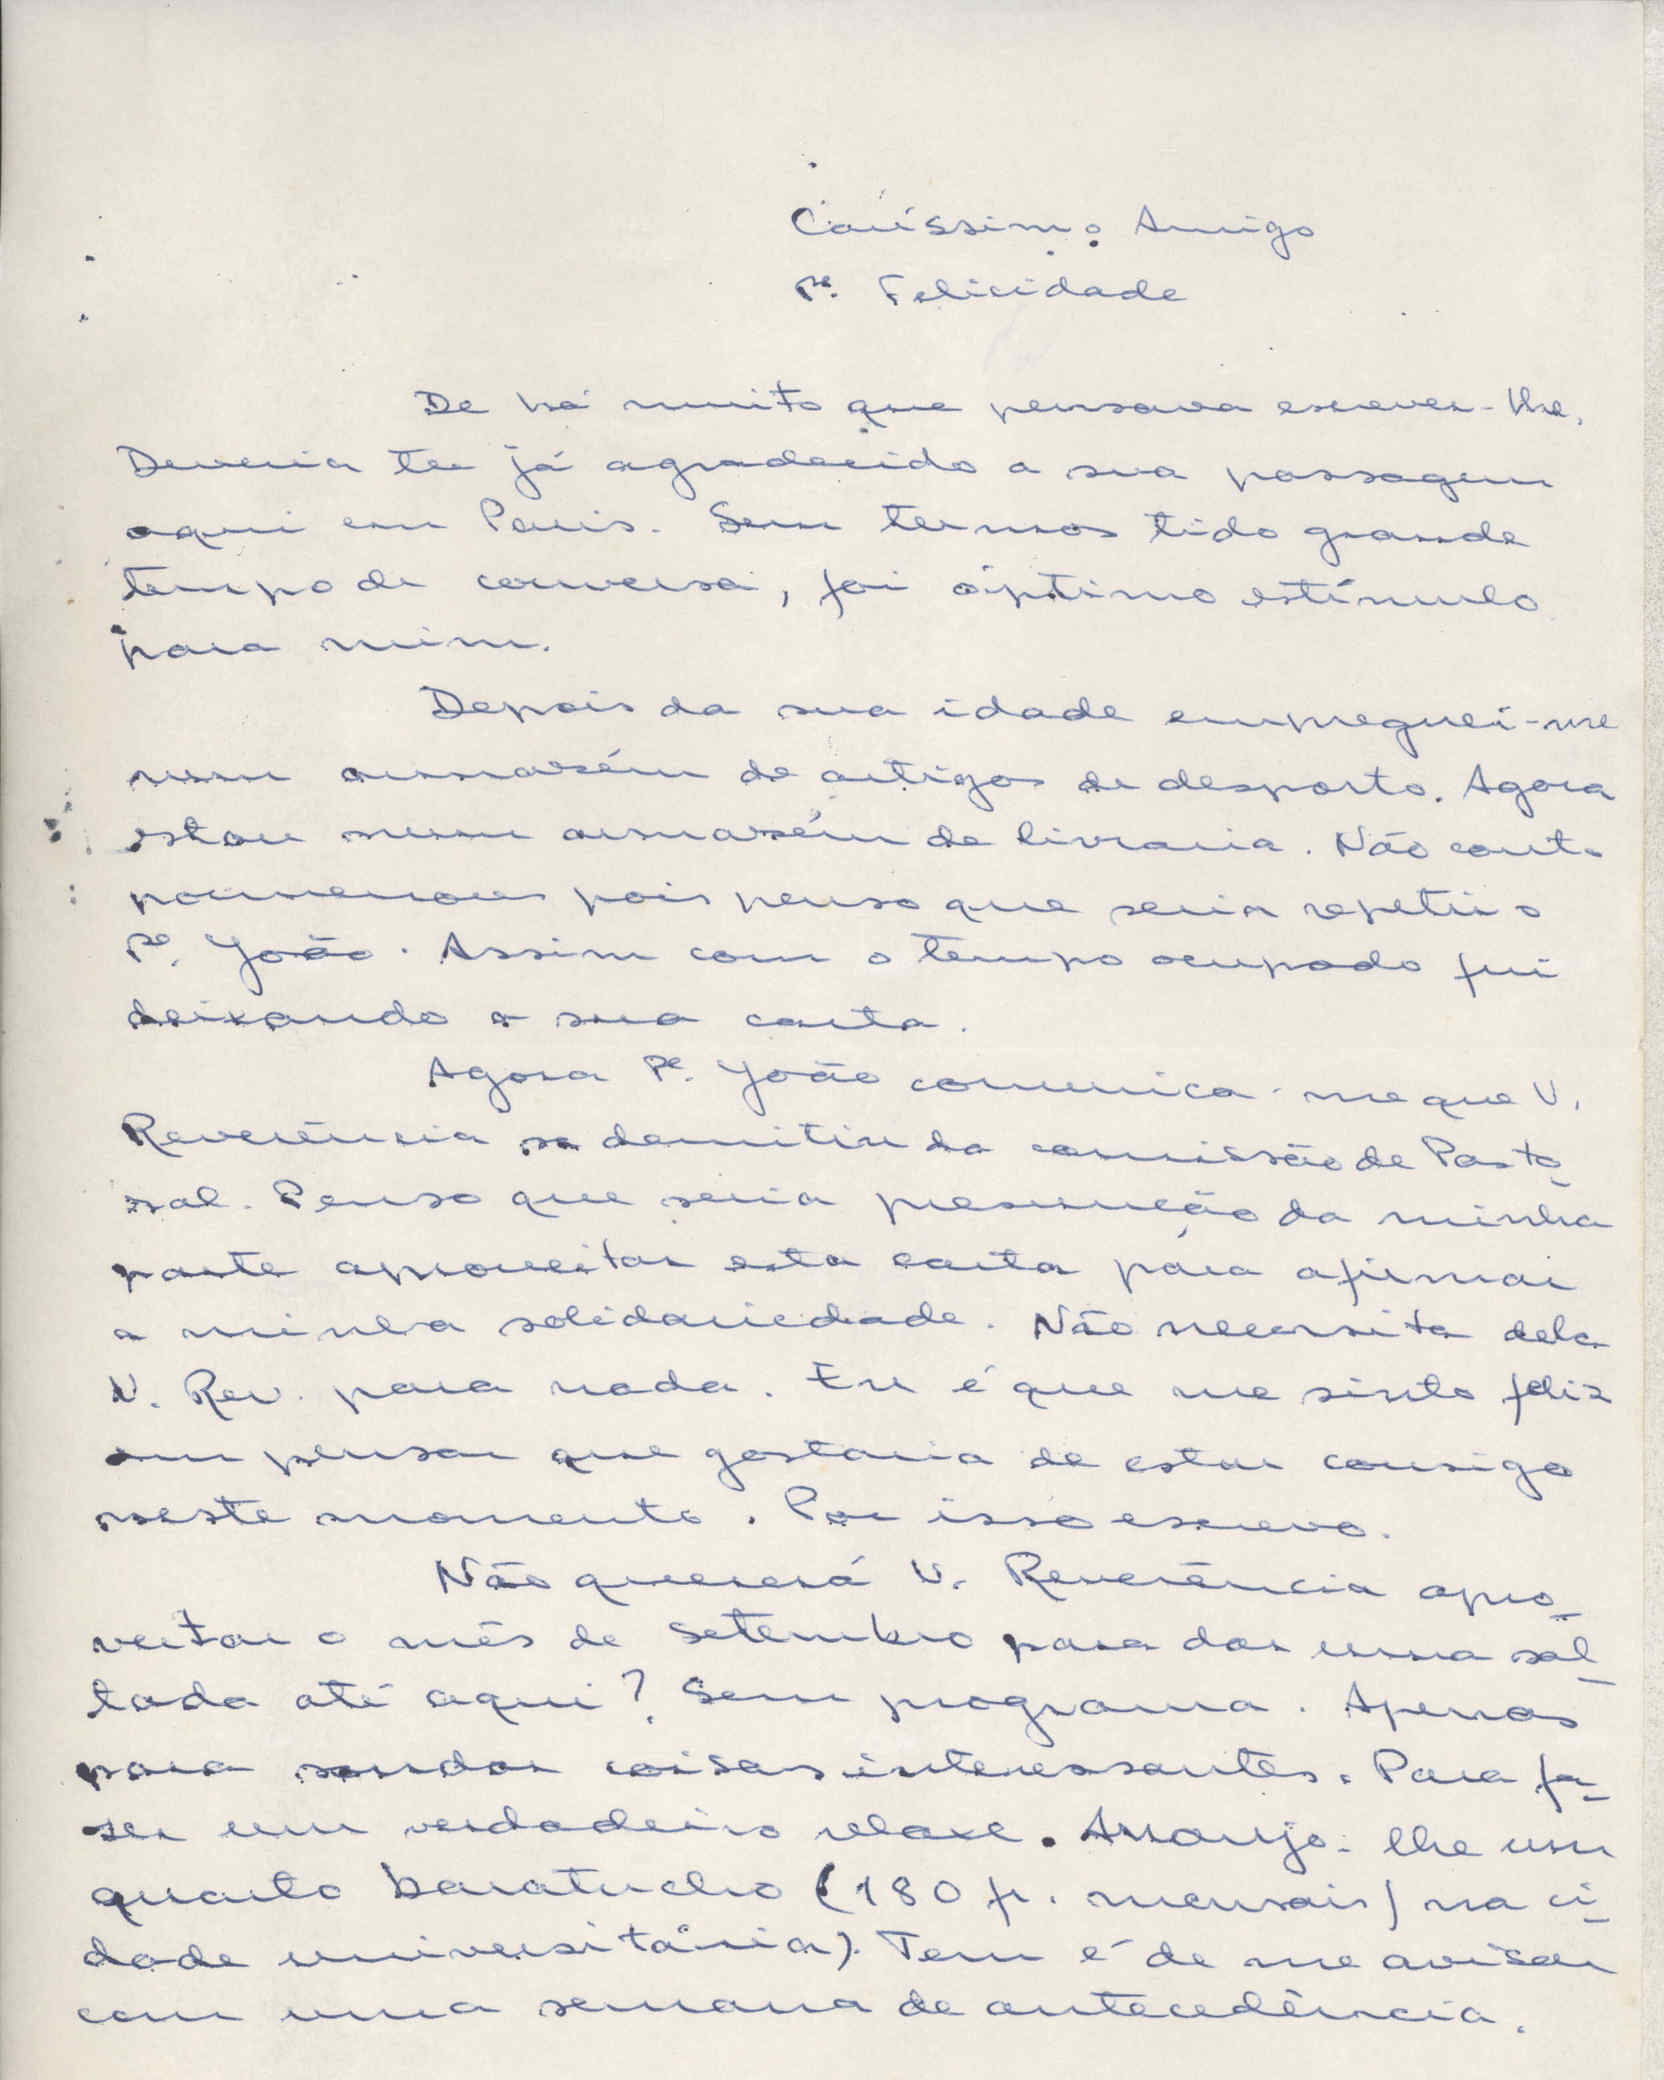 Caríssimo Amigo
Pe. Felicidade
De há muito que pensava escrever-lhe.
Deveria ter já agradecido a sua passagem
aqui em Paris. Sem termos tido grande
tempo de conversa, foi óptimo estímulo
para mim.
Depois da sua idade empreguei-me
num armazém de artigos de desporto. Agora
estou num armazém de livraria. Não conto
pormenores pois penso que seria repetir o
Pe. João. Assim com o tempo ocupado fui
deixando a sua carta.
Agora Pe. João comunica-me que V.
Reverência se demitiu da comissão de Pasto-
ral. Penso que seria presunção da minha
parte aproveitar esta carta para afirmar
a minha solidariedade. Não necessita dela
V. Rev. para nada. Eu é que me sinto feliz
em pensar que gostaria de estar consigo
neste momento. Por isso escrevo.
Não quererá V. Reverência apro-
veitar o mês de Setembro para dar uma sal-
tada até aqui? Sem programa. Apenas
para sondar coisas interessantes. Para fa-
zer um verdadeiro relaxe. Arranjo-lhe um
quarto baratucho (180 fr. mensais) na ci-
dade universitária). Tem é de me avisar
com uma semana de antecedência.